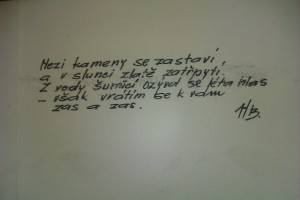 Mezi kameny se zastaví,
a v slunci zlatě zatřpytí.
Z vody šumící ozval se léta hlas
- však vrátím se k vám
zas a zas.